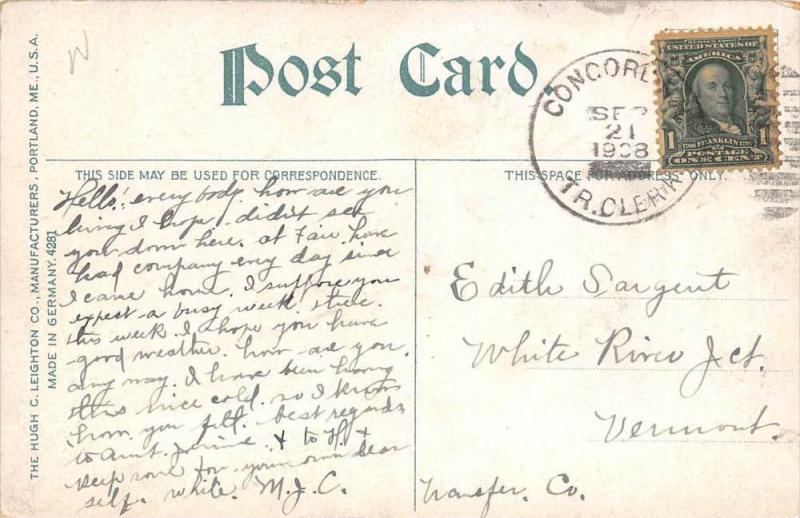 N
Post Card.
CONCORD
SEP
21
1908
TR.CLERK
SERIES 1902
UNITED STATES OF
AMERICA
1 1706 FRANKLIN 1790 1
POSTAGE
ONE CENT
THIS SIDE MAY BE USED FOR CORRESPONDENCE.
THIS SPACE FOR ADDRESS ONLY.
THE HUGH C. LEIGHTON CO., MANUFACTURERS, PORTLAND, ME., U.S.A.
MADE IN GERMANY. 4281
Hello! every body. how are you
living I hope. didn't see
you down here. at Fair. have
had company every day since
I came home. I suppose you
expect a busy week. there.
this week. I hope you have
good weather. how are you.
any way. I have been having
this nice cold. so I know
how you felt. best regards
to aunt. & to H. &
keep some for your own dear
self. write. M.J.C.
Edith Sargent
White River Jct.
Vermont.
Transfer. Co.